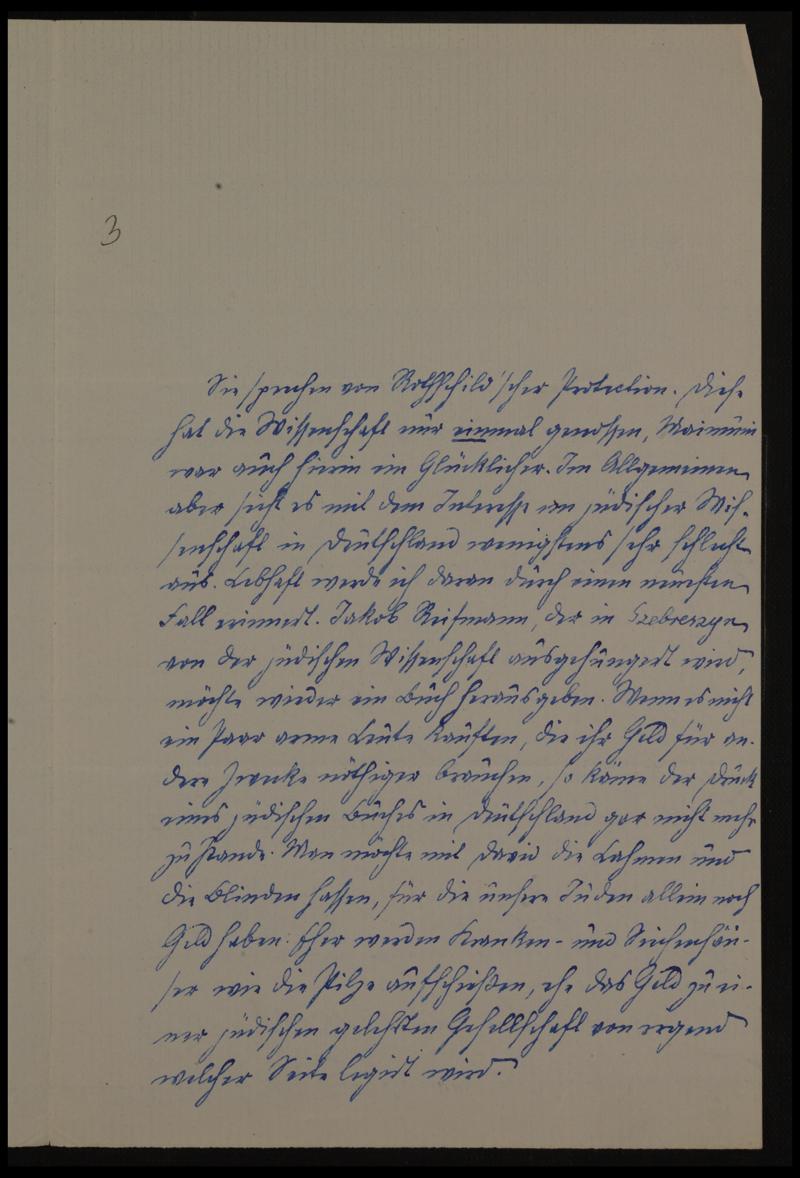 3
Sie sprechen von Rothschild'scher Protection. Diese
hat die Wissenschaft nur einmal genossen, Maimuni
war auch hierin ein Glücklicher. Im Allgemeinen
aber sieht es mit dem Interesse an jüdischer Wis-
senschaft in Deutschland wenigstens sehr schlecht
aus. Lebhaft werde ich daran durch einen neuesten
Fall erinnert. Jakob Reifmann, der in Szebreszyn
von der jüdischen Wissenschaft ausgehungert wird,
möchte wieder ein Buch herausgeben. Wenn es nicht
ein Paar arme Leute kauften, die ihr Geld für an-
dere Zwecke nöthiger brauchen, so käme der Druck
eines jüdischen Buches in Deutschland gar nicht mehr
zu Stande. Man möchte mit David die Lahmen und
die Blinden hassen, für die unsere Juden allein noch
Geld haben. Eher werden Kranken- und Siechenhäu-
ser wie die Pilze aufschießen, ehe das Geld zu ei-
ner jüdischen gelehrten Gesellschaft von irgend
welcher Seite legirt wird.